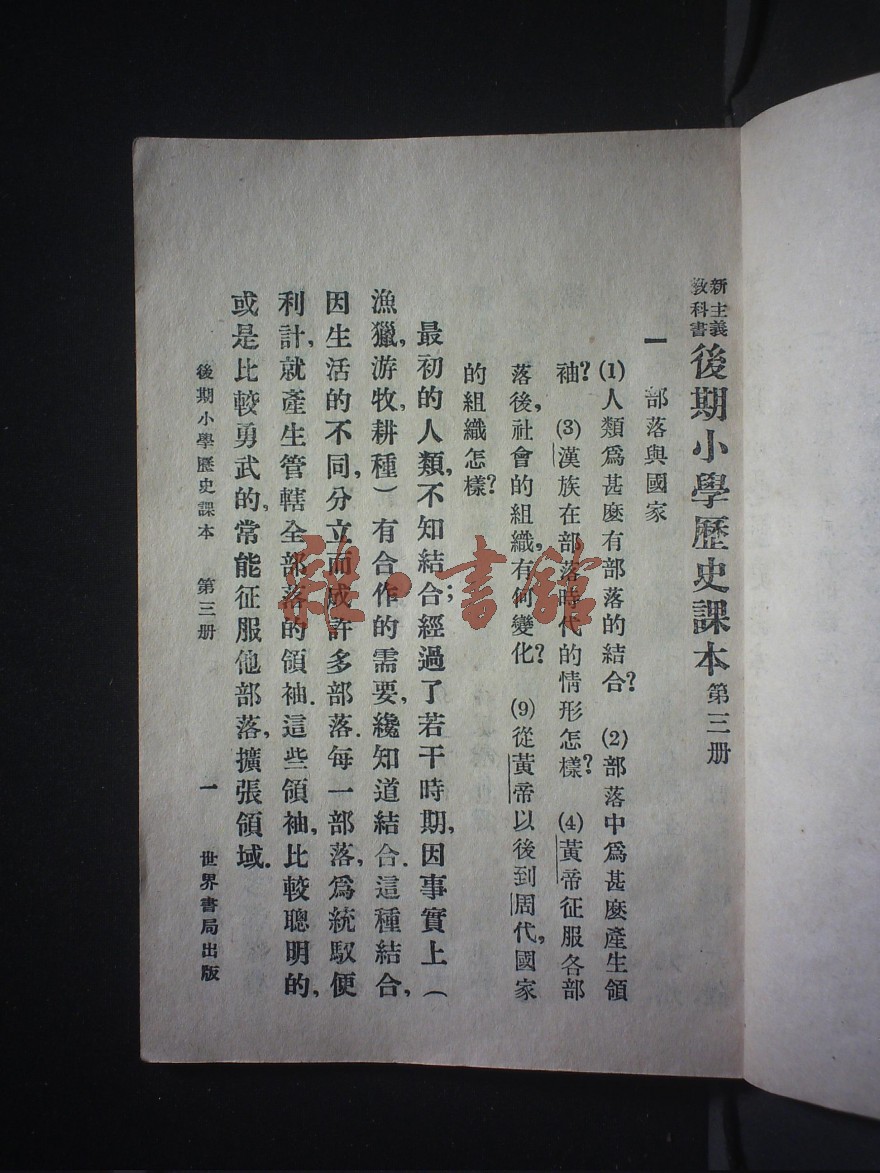 新主義
教科書
後期小學歷史課本 第三册
一 部落與國家
(1)人類爲甚麼有部落的結合? (2)部落中爲甚麼產生領
袖? (3)漢族在部落時代的情形怎樣? (4)黃帝征服各部
落後,社會的組織,有何變化? (9)從黃帝以後到周代,國家
的組織怎樣?
最初的人類,不知結合;經過了若干時期,因事實上(
漁獵,游牧,耕種)有合作的需要,纔知道結合.這種結合,
因生活的不同,分立而成許多部落.每一部落,爲統馭便
利計,就產生管轄全部落的領袖.這些領袖,比較聰明的,
或是比較勇武的,常能征服他部落,擴張領域.
後期小學歷史課本 第三册 一 世界書局出版
雜·書館